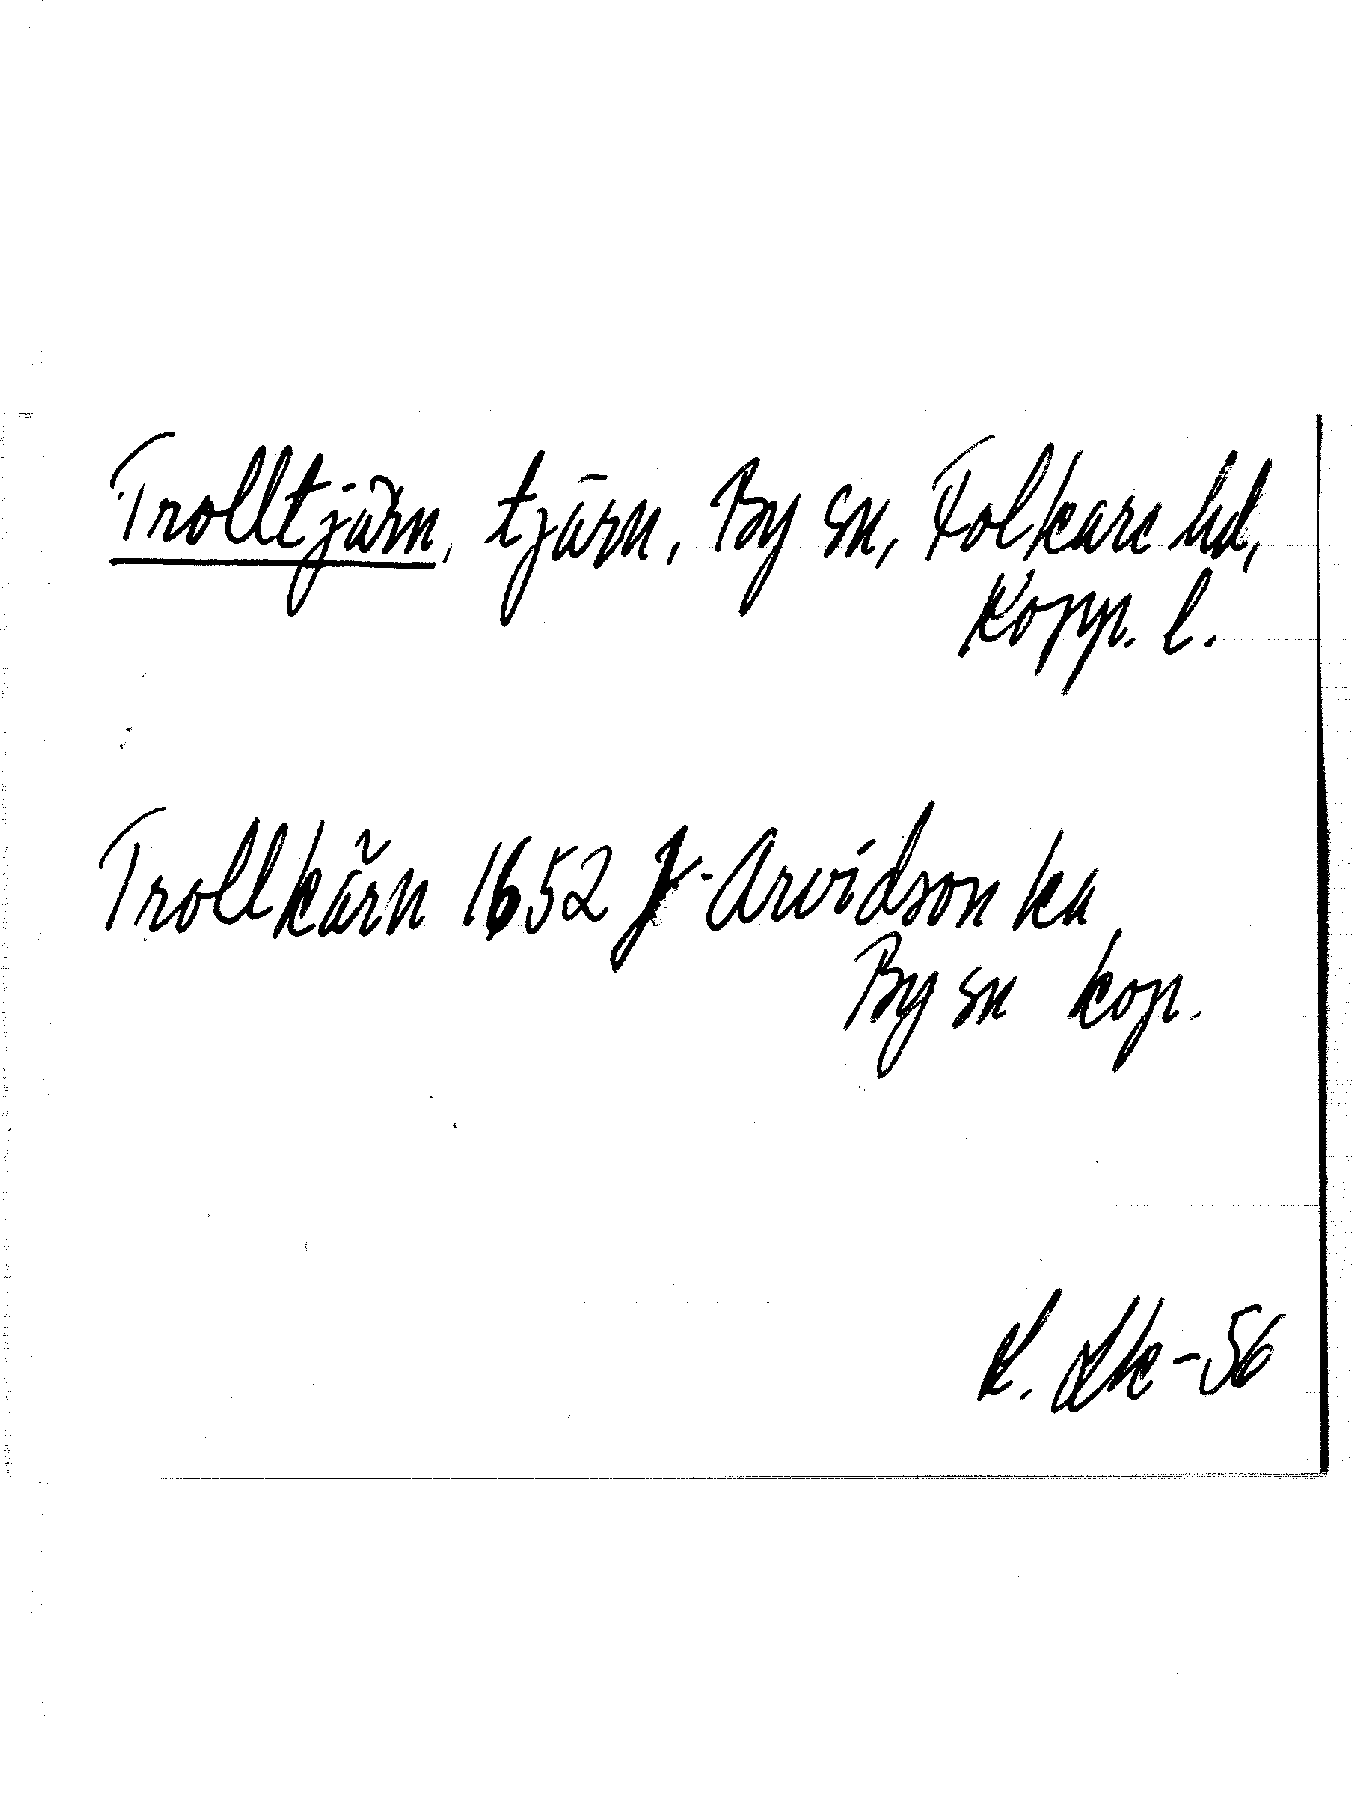 Trolltjärn, tjärn, By sn, Folkare hd,
Kopp. l.
Trollkärn 1652 J. Arvidson ka
By sn kop.
-56